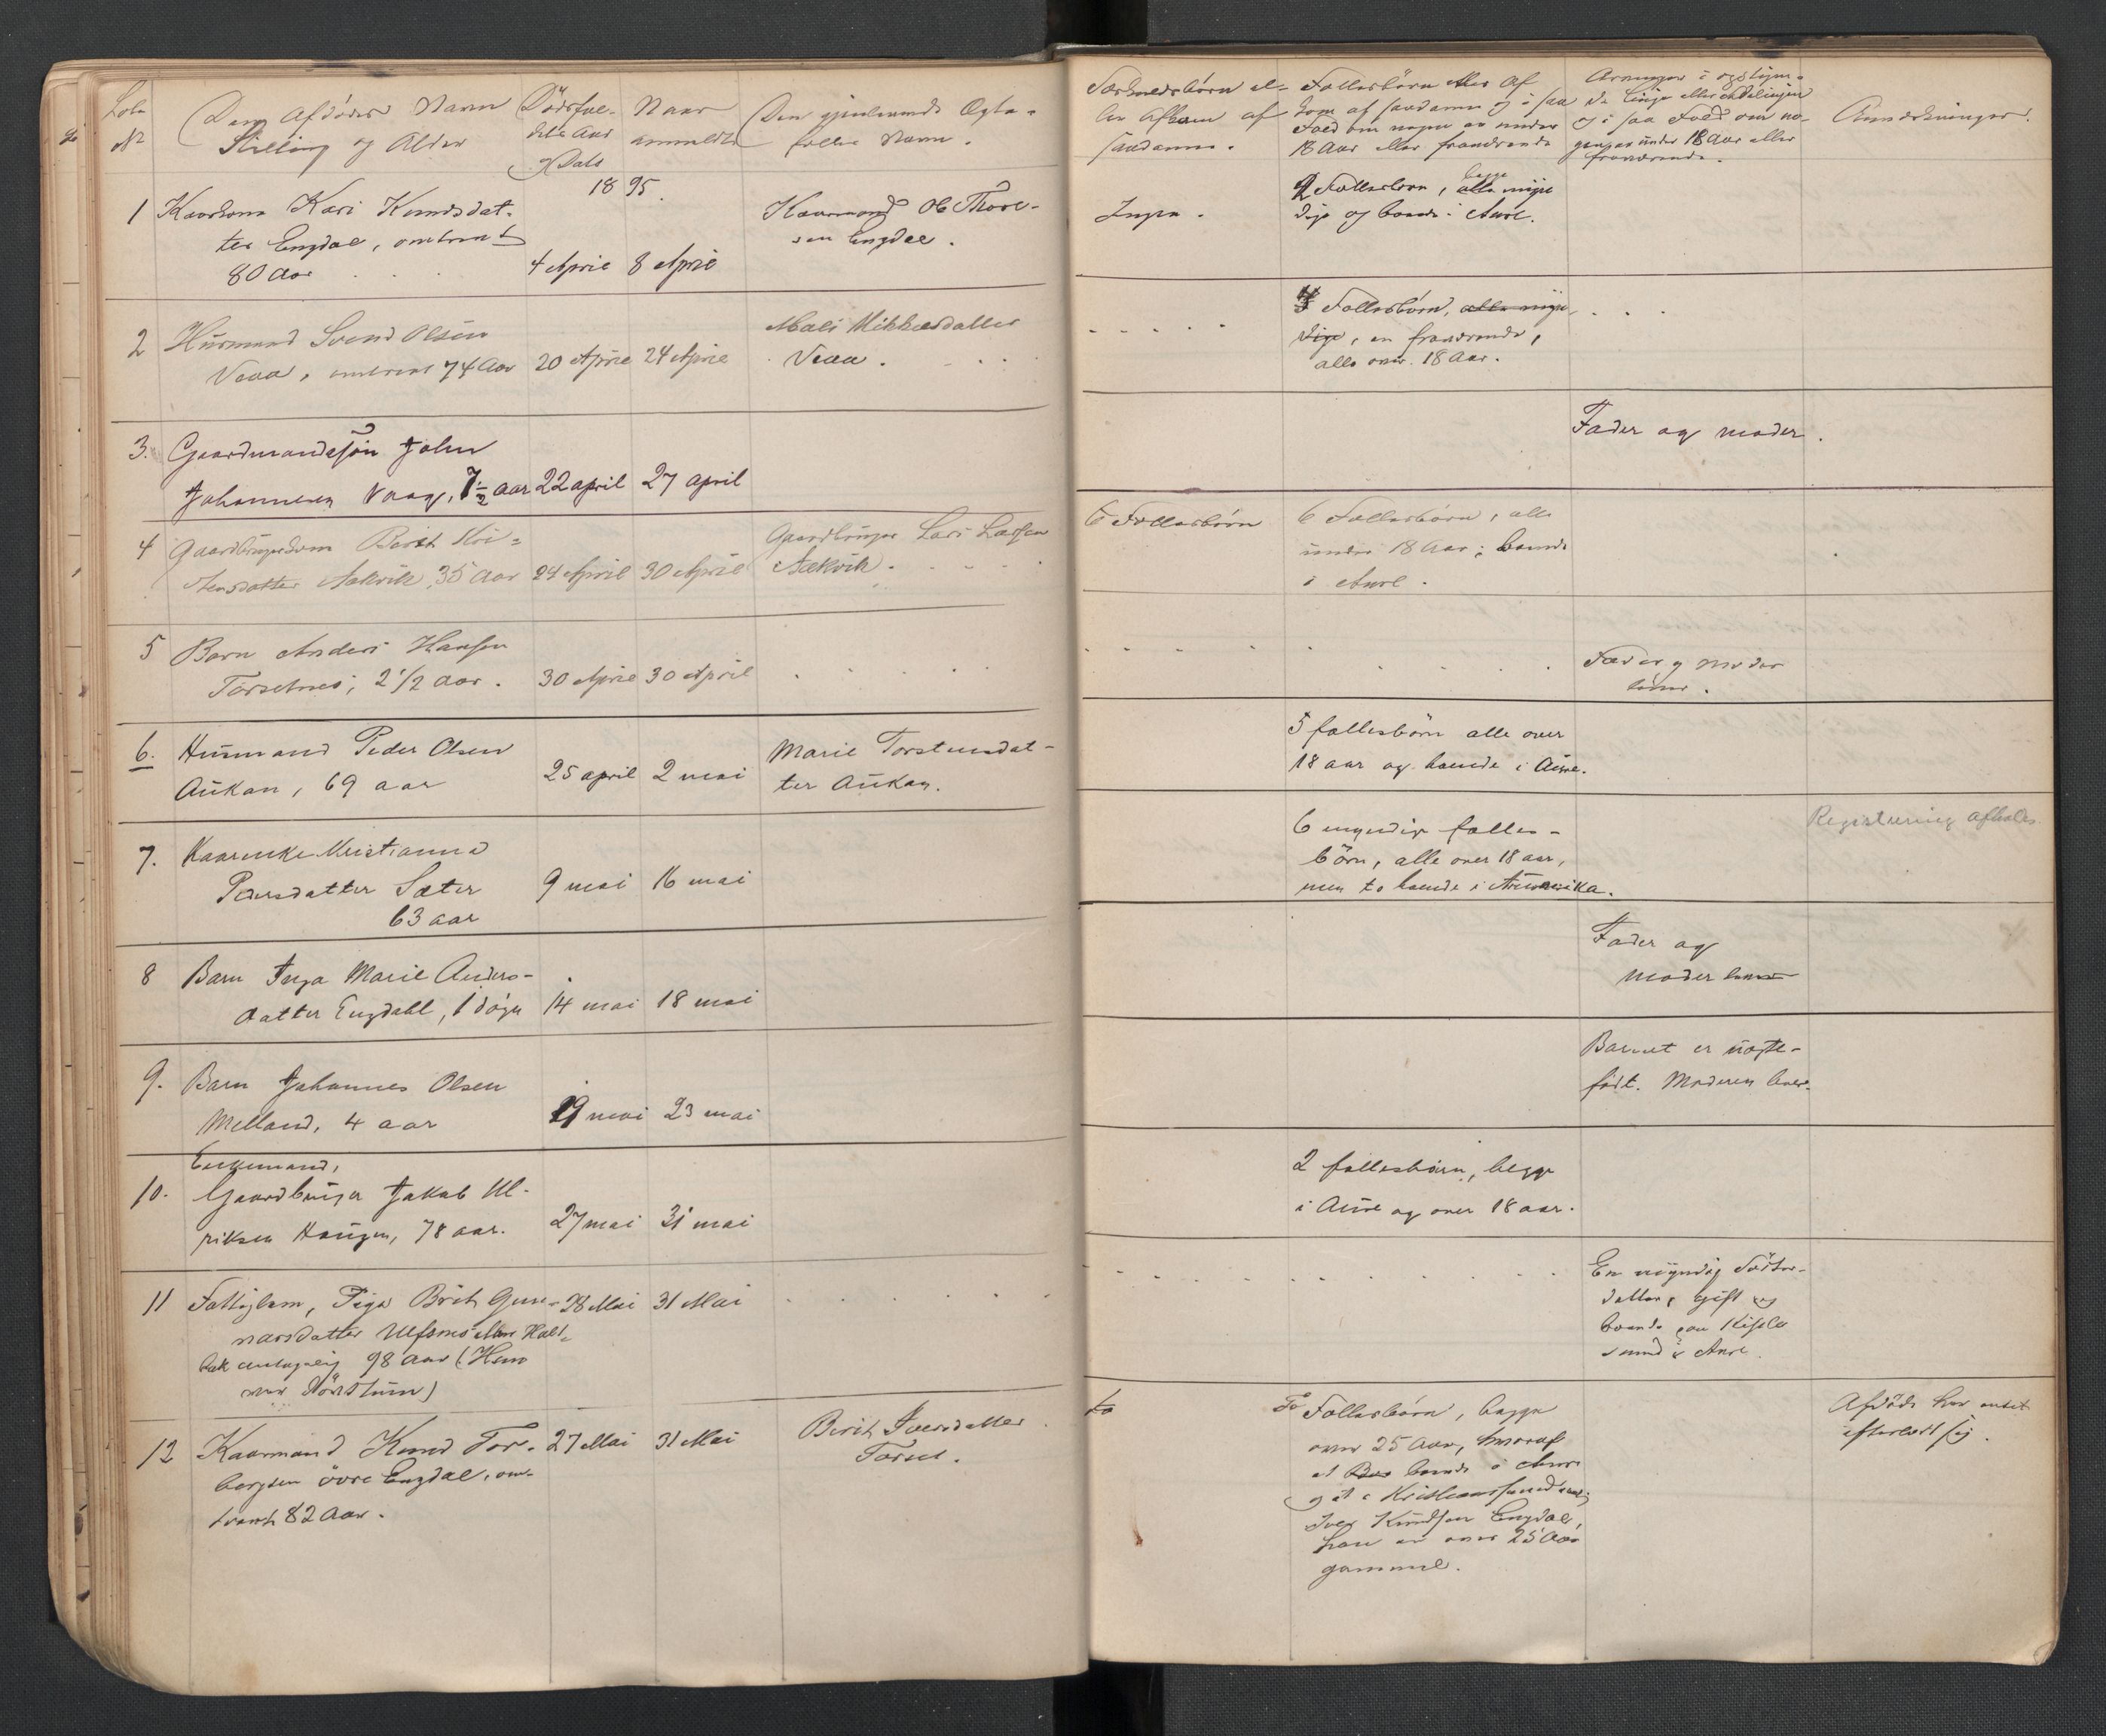 Löbe
No
Den Afdödes Navn
Stilling og Alder
Dödsfal-
dets Aar
og Dato
Naar
anmeldt
Den gjenlevende Ægte-
fælles Navn.
Særkuldsbörn el-
ler Afkom af
saadanne.
Fællesbörn eller Af
kom af saadanne og i saa
Fald om nogen er under
18 Aar eller fraværende
Arvinger i opstigen-
de Linje eller Sidelinjen
og i saa Fald om no-
gen er under 18 Aar eller
fraværende.
Anmerkninger.
1895.
1 Kaarkone Kari Knudsdat-
ter Engdal, omtrent
80 Aar
4 April 8 April
Kaarmand Ole Thore-
sen Engdal.
Ingen.
2 Fællesbörn, alle begge myn
dige og boende i Aure.
2 Husmand Svend Olsen
Vaag, omtrent 74 Aar 20 April 24 April
Mali Mikkelsdatter
4 Fællesbörn, alle myn
dige, en fraværende,
alle over 18 Aar.
3. Gaardmandssön John
Johannesen Vaag, 7 1/2 aar 22 april 27 april
Fader og moder.
4 Gaardbrugerkone Berit Kri-
stensdatter Aakvik, 35 Aar 24 April 30 April
Gaardbruger Lars Larsen
Aakvik.
6 Fællesbörn
6 Fællesbörn, alle
under 18 Aar; boende
i Aure.
5 Barn Anders Hansen
Torsetnes, 2 1/2 Aar. 30 April 30 April
Fader og Moder
lever.
6. Husmand Peder Olsen
Aukan, 69 aar
25 april 2 mai
Marie Torstensdat-
ter Aukan.
5 fællesbörn alle over
18 aar og boende i Aure.
7. Kaarenke Kristianna
Pedersdatter Sæter
63 aar
9 mai 16 mai
6 myndige fælles-
börn, alle over 18 aar,
men to boende i Amerika.
Registrering afholdes.
8 Barn Inga Marie Anders-
datter Engdahl, 1 dögn 14 mai 18 mai
Fader og
moder lever
9. Barn Johannes Olsen
Melland, 4 aar
19 mai 23 mai
Barnet er uægte-
födt. Moderen lever.
10. Enkemand,
Gaardbruger Jakob Ul-
riksen Haugen, 78 aar.
27 mai 31 mai
2 fællesbörn, begge
i Aure og over 18 aar.
11 Fattiglem, Pige Brit Gun-
narsdatter Ulfsnes eller Hald-
bak antagelig 98 Aar (Hun
var Dövstum)
28 Mai 31 Mai
En myndig Söster-
datter, gift og
boende paa
sund i Aure.
12 Kaarmand Knud Tor-
bergsen övre Engdal, om-
trent 82 Aar.
27 Mai 31 Mai
Berit Iversdatter
To Fællesbörn, begge
over 25 Aar, hvoraf
et boende i Aure
og et i Kristianssund
Iver Knudsen Engdal,
han er over 25 Aar
gammel.
Afdöde har intet
efterladt sig.